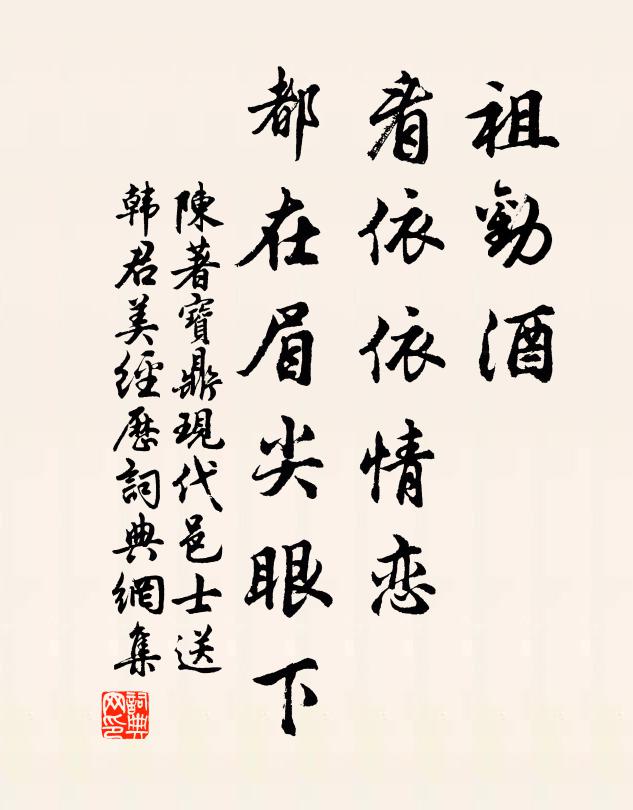 祖勸酒
看依依情恋
都在眉尖眼下
陳著寶鼎現代邑士送
韩君美經歷詞典網集
詞典网印